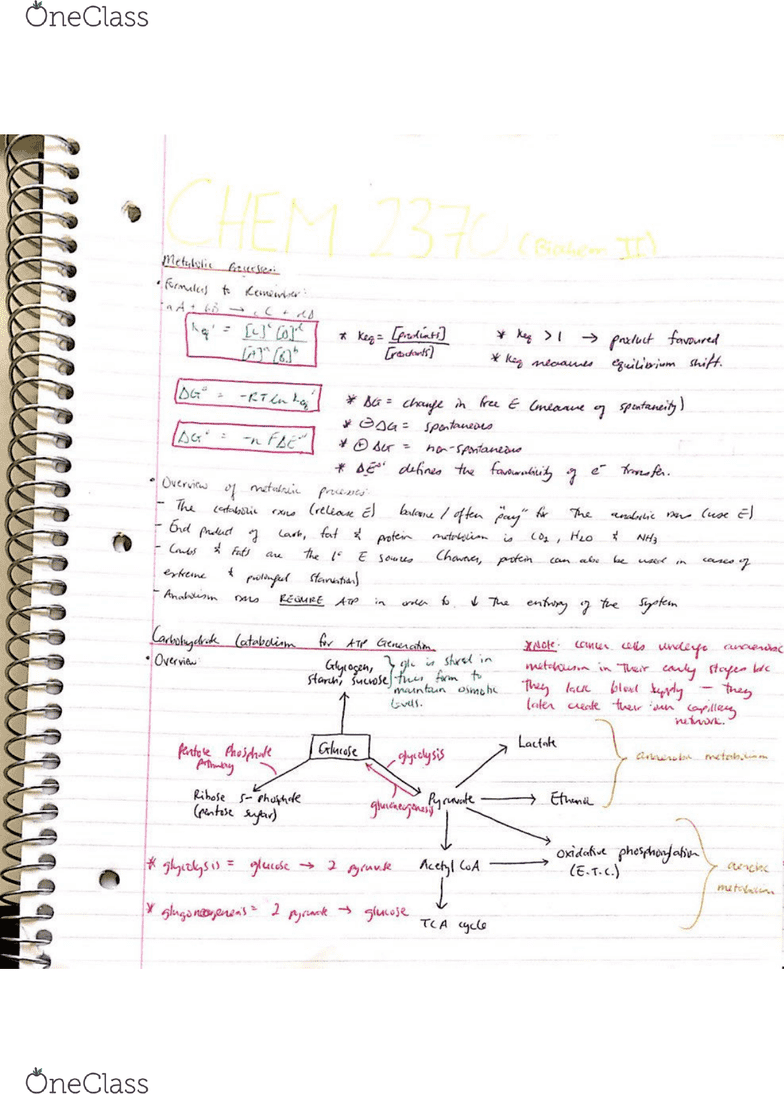 OneClass
CHEM 2370 (Biochem II)
Metabolic Processes:
• Formulas to Remember:
aA + bB → cC + dD
Keq' = [C]^c [D]^d
[A]^a [B]^b
* Keq = [products]
[reactants]
* Keq >1 → product favoured
* Keq measures equilibrium shift.
ΔG°' = -RT ln Keq'
* ΔG = change in free E (measure of spontaneity)
* ⊖ΔG = spontaneous
ΔG°' = -nFΔE°'
* ⊕ ΔG = non-spontaneous
* ΔE°' defines the favourability of e⁻ transfer.
• Overview of metabolic processes:
- The catabolic rxns (release E) balance / often "pay" for the anabolic rxns (use E)
- End product of carb, fat & protein metabolism is CO2, H2O & NH3
- Carbs & Fats are the 1° E sources (however, protein can also be used in cases of
extreme & prolonged starvation)
- Anabolism rxns REQUIRE ATP in order to ↓ the entropy of the system
Carbohydrate Catabolism for ATP Generation
• Overview:
Glycogen,
starch, sucrose
} glc is stored in
this form to
maintain osmotic
levels.
*Note: cancer cells undergo anaerobic
metabolism in their early stages b/c
they lack blood supply – they
later create their own capillary
network.
Pentose Phosphate
Pathway
Glucose
glycolysis
gluconeogenesis
Lactate
anaerobic metabolism
Ribose 5-phosphate
(pentose sugar)
Pyruvate
Ethanol
* glycolysis = glucose → 2 pyruvate
Acetyl CoA
oxidative phosphorylation
(E.T.C.)
aerobic
metabolism
* glugoneogenesis = 2 pyruvate → glucose
TCA cycle
OneClass